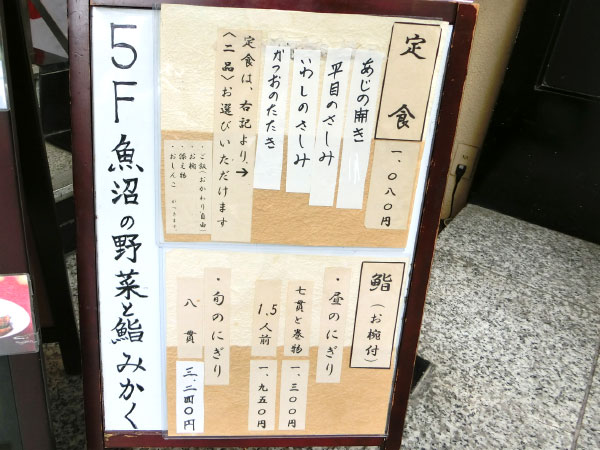 5F 魚沼の野菜と鮨 みかく
定食
一、〇八〇円
あじの開き
平目のさしみ
いわしのさしみ
かつおのたたき
定食は、右記より、→
〈二品〉お選びいただけます
・ご飯(おかわり自由)
・お椀
・添え物
・おしんこ がつきます。
鮨(お椀付)
・昼のにぎり
七貫と巻物
一、三〇〇円
1.5人前
一、九五〇円
・旬のにぎり
八貫
三、二四〇円